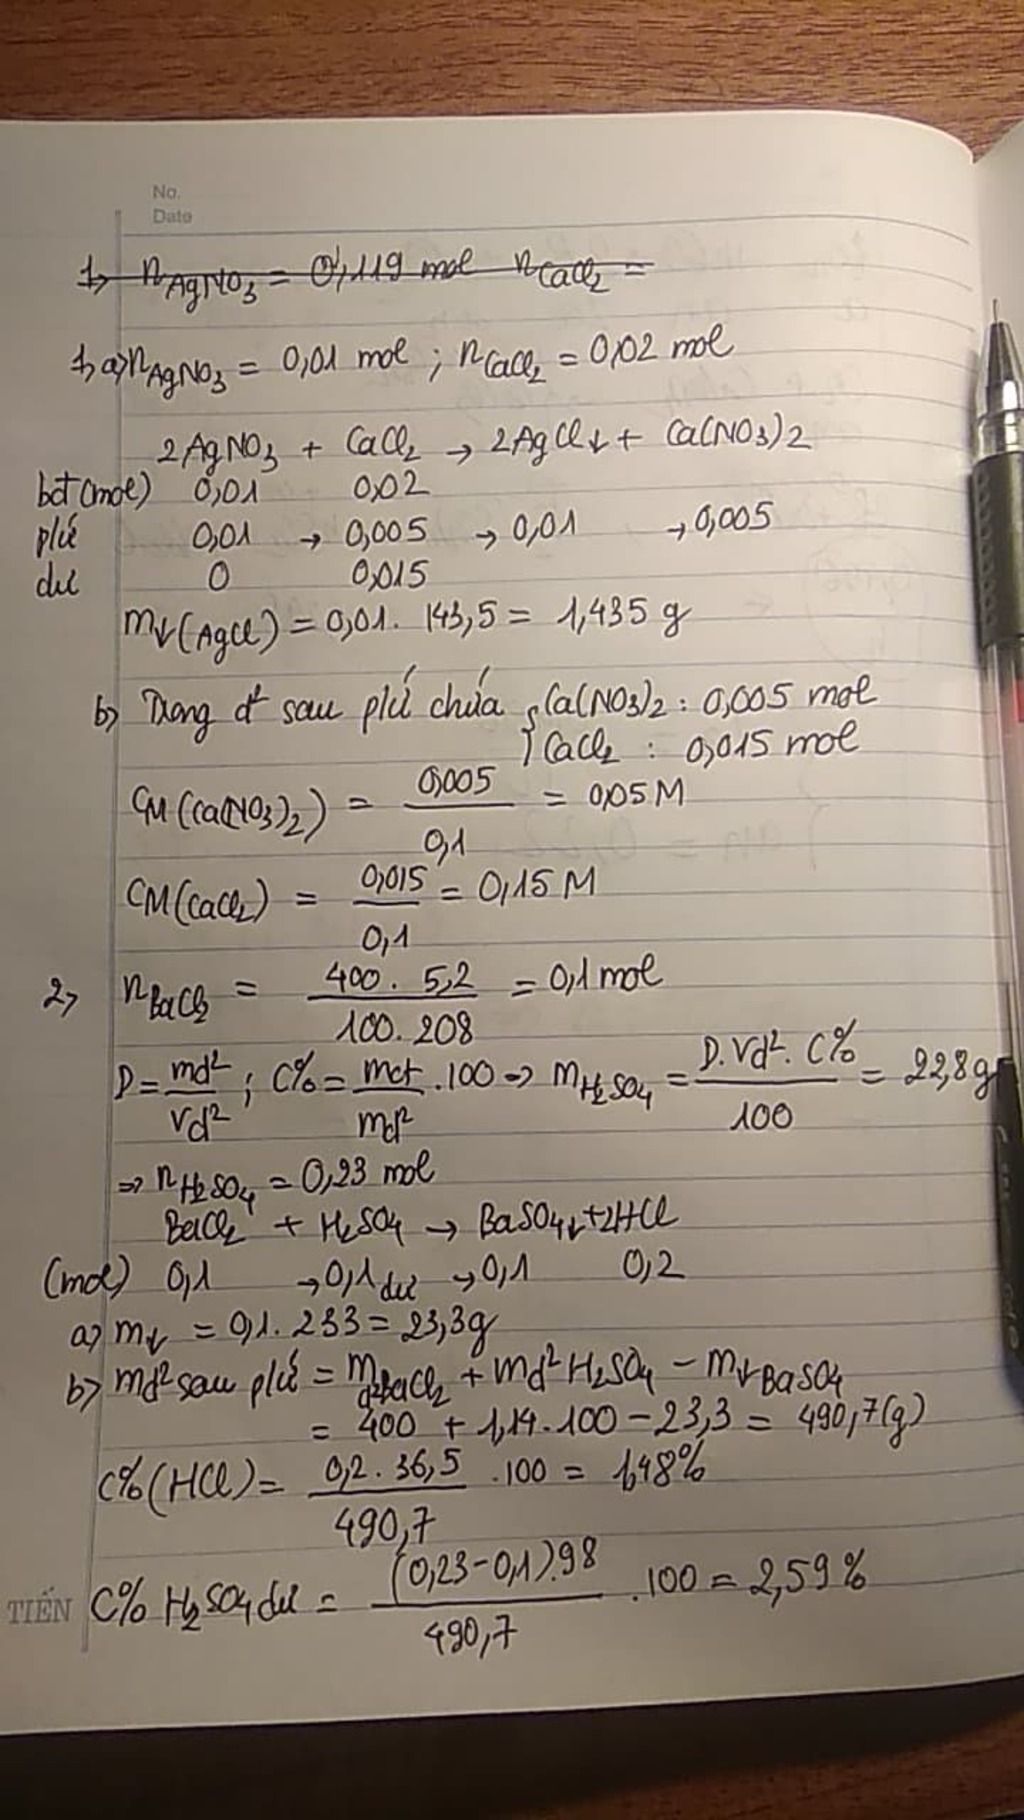 No.
Date
1, nAgNO3 = 0,119 mol nCaCl2 =
1, a) nAgNO3 = 0,01 mol ; nCaCl2 = 0,02 mol
2AgNO3 + CaCl2 → 2AgCl↓ + Ca(NO3)2
bđt (mol) 0,01 0,02
pứ 0,01 → 0,005 → 0,01 → 0,005
dư 0 0,015
m↓(AgCl) = 0,01. 143,5 = 1,435 g
b) Trong d² sau pứ chứa { Ca(NO3)2 : 0,005 mol
CaCl2 : 0,015 mol
CM(Ca(NO3)2) = 0,005 / 0,1 = 0,05 M
CM(CaCl2) = 0,015 / 0,1 = 0,15 M
2, nBaCl2 = 400. 5,2 / 100. 208 = 0,1 mol
D = md² / Vd² ; C% = mct / md² .100 => mH2SO4 = D.Vd². C% / 100 = 22,8g
=> nH2SO4 = 0,23 mol
BaCl2 + H2SO4 → BaSO4↓ + 2HCl
(mol) 0,1 → 0,1 dư → 0,1 0,2
a) m↓ = 0,1. 233 = 23,3g
b) md² sau pứ = md²BaCl2 + md²H2SO4 - m↓BaSO4
= 400 + 1,14.100 - 23,3 = 490,7(g)
C%(HCl) = 0,2. 36,5 / 490,7 .100 = 1,48%
C% H2SO4 dư = (0,23-0,1).98 / 490,7 .100 = 2,59%
TIẾN